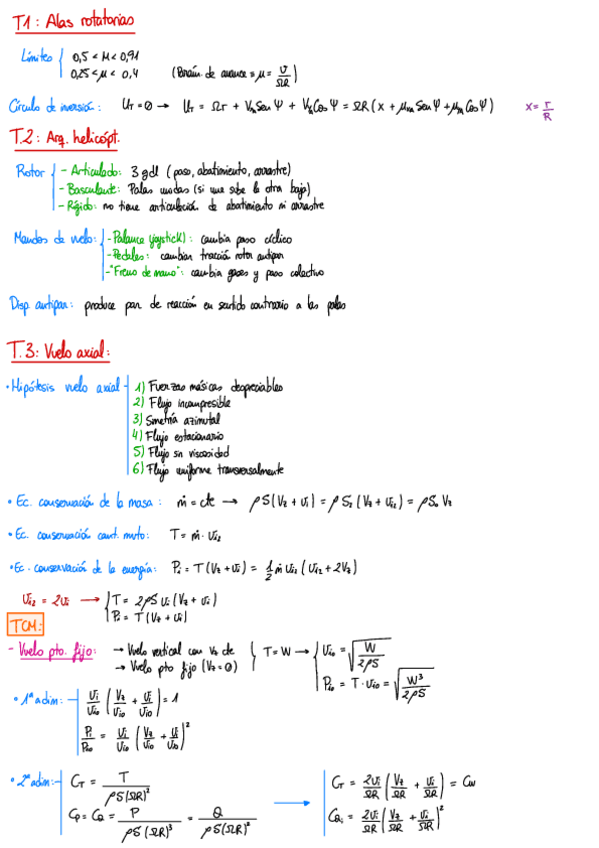 T1: Alas rotatorias
Límites 0,5 < M < 0,91
0,25 < μ < 0,4 (Param. de avance = μ = V/ΩR)
Círculo de inversión: U_T = 0 → U_T = Ωr + V_x Sen Ψ + V_y Cos Ψ = ΩR (x + μ_x Sen Ψ + μ_y Cos Ψ) x = r/R
T.2: Arq. helicópt.
Rotor - Articulado: 3 gdl (paso, abatimiento, arrastre)
- Basculante: Palas unidas (si una sube la otra baja)
- Rígido: no tiene articulación de abatimiento ni arrastre
Mandos de vuelo: - Palanca (joystick): cambia paso cíclico
- Pedales: cambian tracción rotor antipar
- "Freno de mano": cambia gases y paso colectivo
Disp. antipar: produce par de reacción en sentido contrario a las palas
T.3: Vuelo axial:
• Hipótesis vuelo axial 1) Fuerzas másicas despreciables
2) Flujo incompresible
3) Simetría azimutal
4) Flujo estacionario
5) Flujo sin viscosidad
6) Flujo uniforme transversalmente
• Ec. conservación de la masa: ṁ = cte → ρS(V_z + v_i) = ρS_2 (V_z + v_i2) = ρS_0 V_z
• Ec. conservación cant. mvto: T = ṁ · v_i2
• Ec. conservación de la energía: P_i = T(V_z + v_i) = 1/2 ṁ v_i2 (v_i2 + 2V_z)
v_i2 = 2v_i → T = 2ρS v_i (V_z + v_i)
P_i = T(V_z + v_i)
TCM:
- Vuelo pto. fijo: → Vuelo vertical con V_z cte
→ Vuelo pto fijo (V_z = 0) T = W → v_i0 = √(W/2ρS)
P_i0 = T · v_i0 = √(W³/2ρS)
• 1ª adim: v_i/v_i0 (V_z/v_i0 + v_i/v_i0) = 1
P_i/P_i0 = v_i/v_i0 (V_z/v_i0 + v_i/v_i0)²
• 2ª adim: C_T = T/ρS(ΩR)² → C_T = 2v_i/ΩR (V_z/ΩR + v_i/ΩR) = C_W
C_P = C_Q = P/ρS(ΩR)³ = Q/ρS(ΩR)² C_Qi = 2v_i/ΩR (V_z/ΩR + v_i/ΩR)²